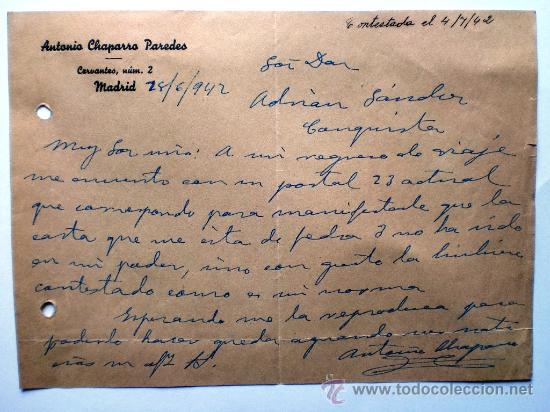 Contestada el 4/7/42
Antonio Chaparro Paredes
Cervantes, núm. 2
Madrid 28/6/942
Sor Don
Adrian Sánchez
Conquista
Muy Sor mio: A mi regreso de viaje
me encuentro con su postal 23 actual
que correspondo para manifestarle que la
carta que me cita de fecha 3 no ha sido
en mi poder, sino con gusto la hubiera
contestado como es mi norma
Esperando me la reproduzca para
poderlo hacer quedo aguardando sus noti
cias
Antonio Chaparro
todocoleccion.net